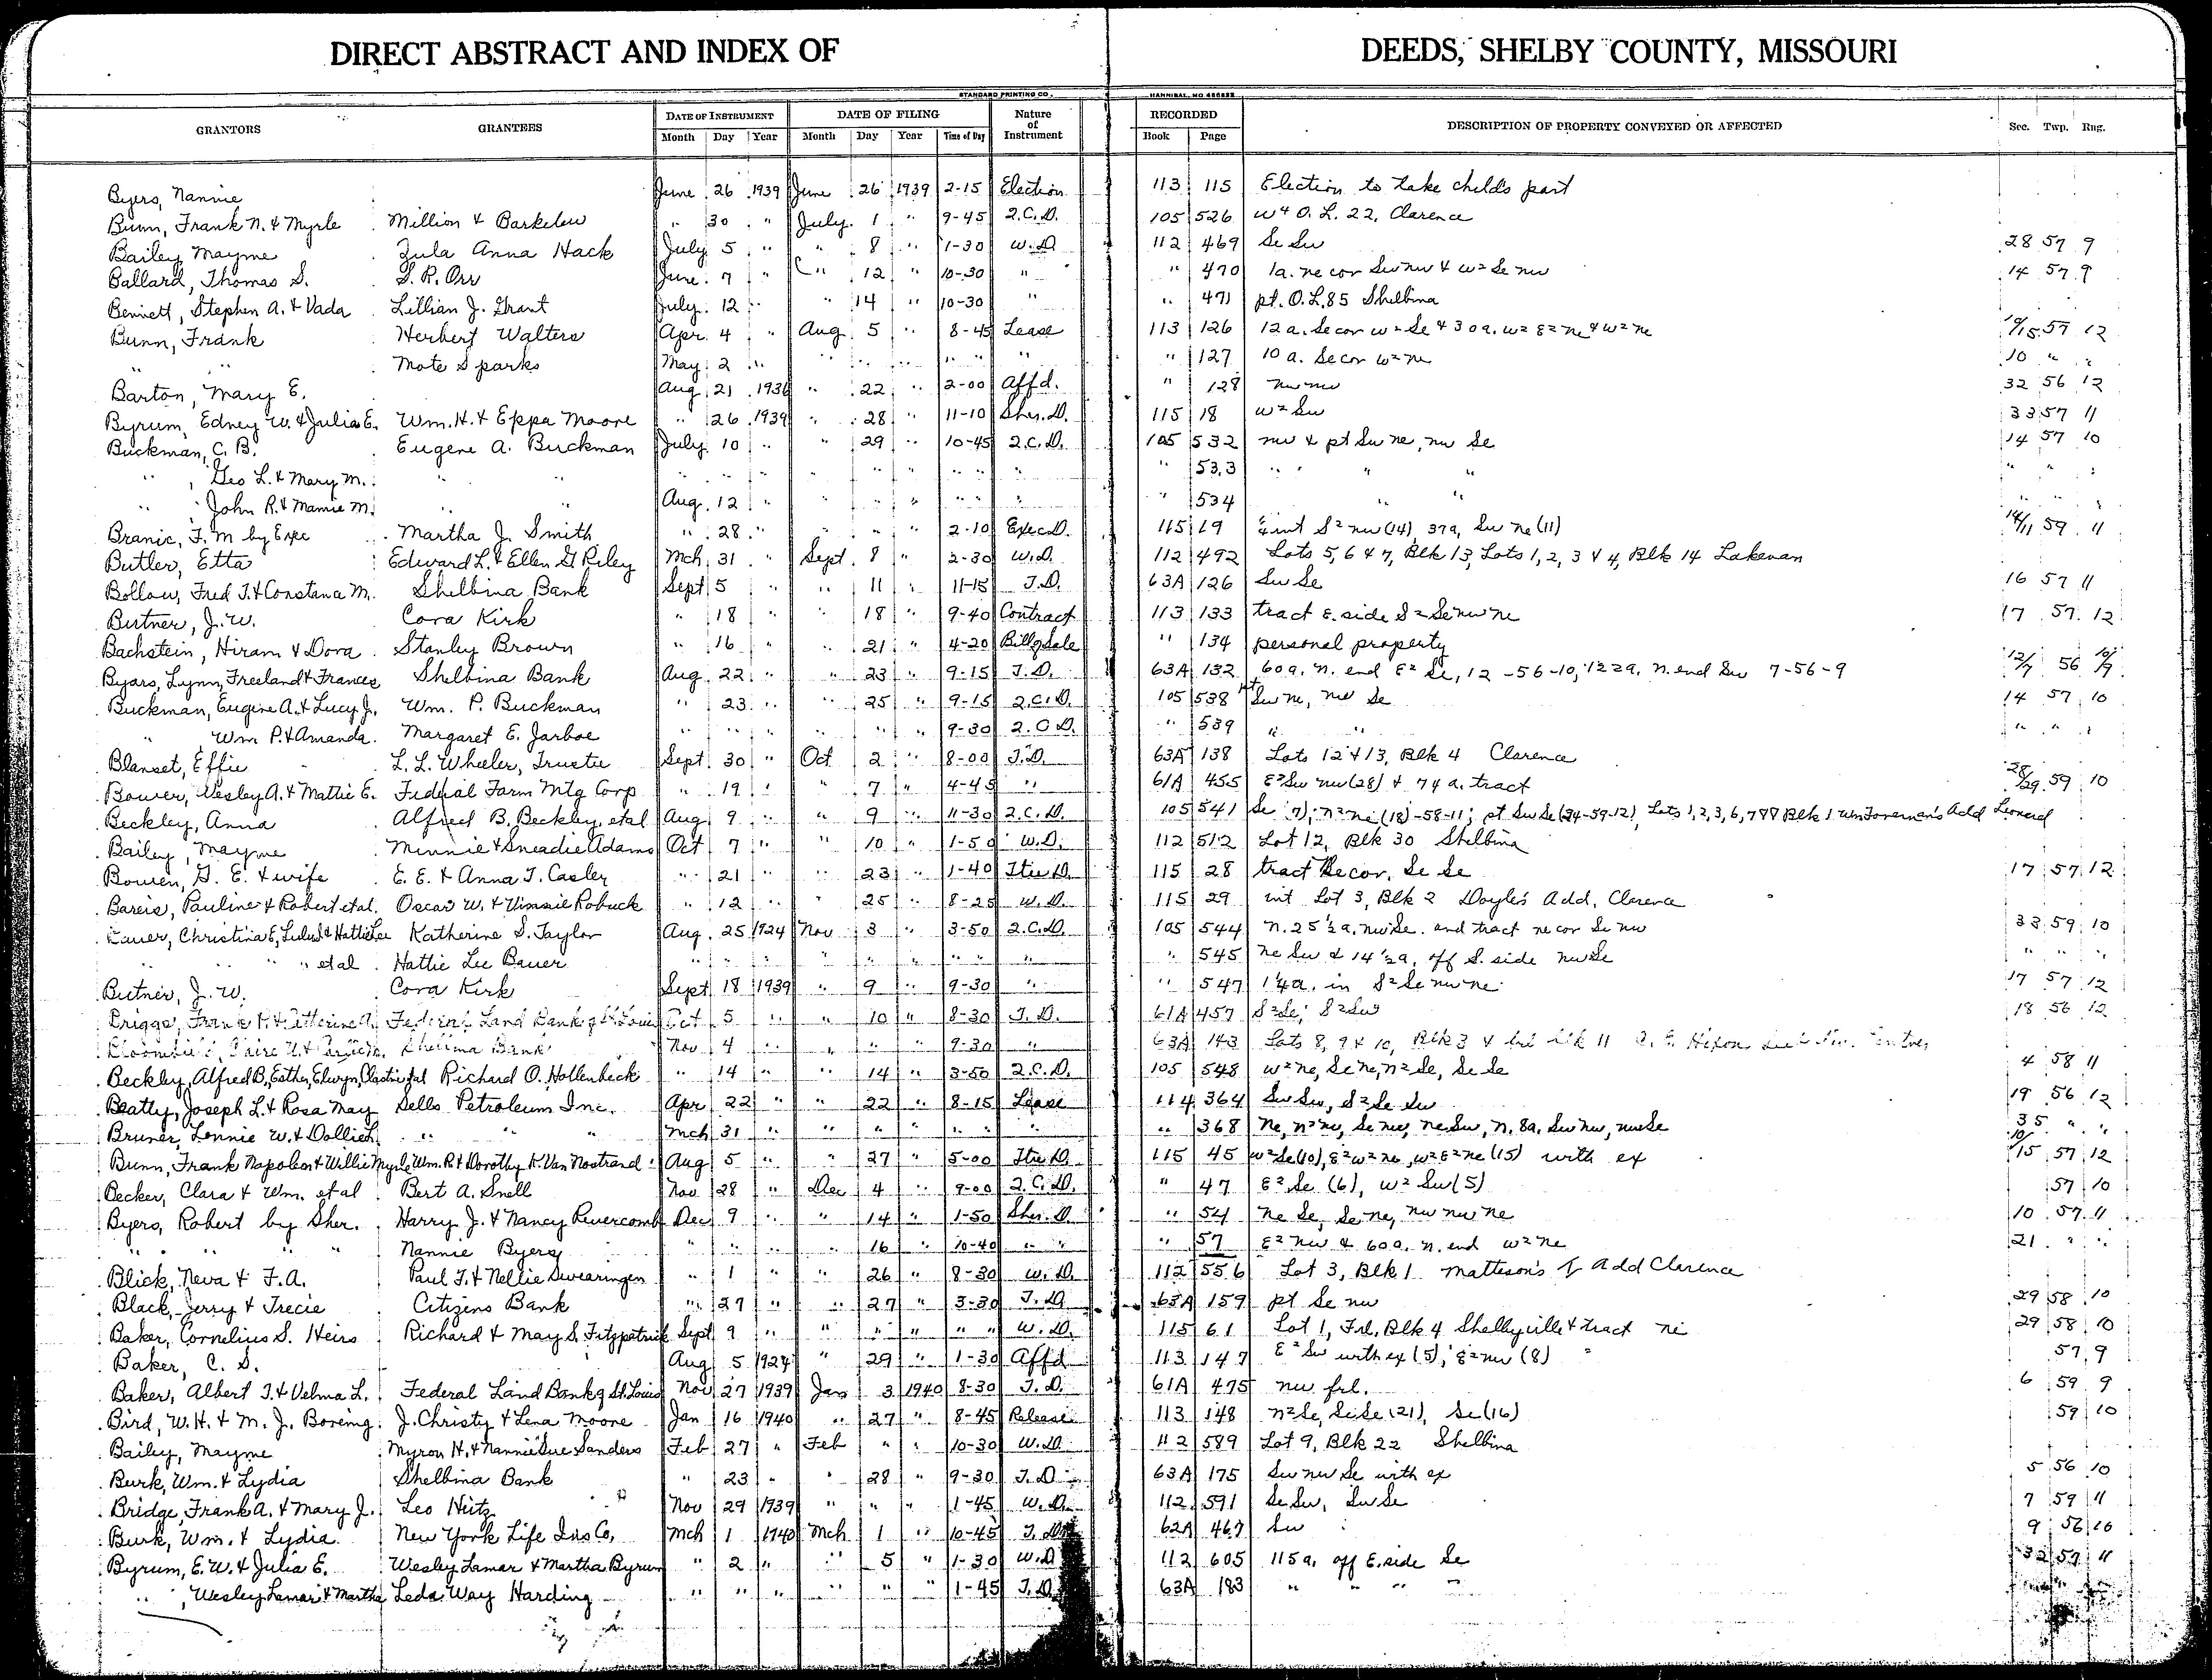 DIRECT ABSTRACT AND INDEX OF DEEDS, SHELBY COUNTY, MISSOURI
STANDARD PRINTING CO. HANNIBAL, MO
GRANTORS GRANTEES DATE OF INSTRUMENT DATE OF FILING Nature of Instrument RECORDED DESCRIPTION OF PROPERTY CONVEYED OR AFFECTED Sec. Twp. Rng.
Month Day Year Month Day Year Time of Day Book Page
Byers, Nannie June 26 1939 June 26 1939 2-15 Election 113 115 Election to take childs part
Bunn, Frank N. & Myrle Million & Barkelew " 30 " July 1 " 9-45 2.C.D. 105 526 O. L. 22, Clarence
Bailey Mayme Zula Anna Hack July 5 " " 8 " 1-30 W.D. 112 469 Se Sw 28 57 9
Ballard, Thomas S. S. R. Orr June 7 " " 12 " 10-30 " " 470 1a. ne cor Sw nw & w2 Se nw 14 57 9
Bennett, Stephen A. & Vada Lillian J. Grant July 12 " " 14 " 10-30 " " 471 pt. O.L. 85 Shelbina
Bunn, Frank Herbert Walters Apr 4 " Aug 5 " 8-45 Lease 113 126 12 a. Se cor w2 Se & 30 a. w2 E2 ne & w2 ne 10/15 57 12
" " Mote Sparks May 2 " " " " " " " " 127 10 a. Se cor w2 ne 10 " "
Barton, Mary E. Aug 21 1936 " 22 " 2-00 Affd. " 128 nw nw 32 56 12
Byrum, Edney W. & Julia E. Wm. H. & Eppa Moore " 26 1939 " 28 " 11-10 Sher. D. 115 18 w2 Sw 33 57 11
Buckman, C. B. Eugene A. Buckman July 10 " " 29 " 10-45 2.C.D. 105 532 nw & pt Sw ne, nw Se 14 57 10
" , Geo L. & Mary M. " " " " " " " " " " " " 533 " " " " " "
" , John R. & Mamie M. " " Aug. 12 " " " " " " " " 534 " " " " "
Branic, F. M by Exec Martha J. Smith " 28 " " " " 2-10 Exec D. 115 19 int S2 nw (14), 37a, Sw ne (11) 14/11 59 11
Butler, Etta Edward L. & Ellen G Riley Mch 31 " Sept. 8 " 2-30 W.D. 112 492 Lots 5, 6 & 7, Blk 13, Lots 1, 2, 3 & 4, Blk 14 Lakenan
Bollow, Fred T. & Constana M. Shelbina Bank Sept 5 " " 11 " 11-15 T.D. 63A 126 Sw Se 16 57 11
Butner, J. W. Cora Kirk " 18 " " 18 " 9-40 Contract 113 133 tract E. side S2 Se nw ne 17 57 12
Bachstein, Hiram & Dora Stanley Brown " 16 " " 21 " 4-20 Bill of Sale " 134 personal property
Byars, Lynn, Freeland & Frances Shelbina Bank Aug. 22 " " 23 " 9-15 T.D. 63A 132 60 a. n. end E2 Se, 12-56-10, 122a, n. end Sw 7-56-9 12/7 56 10/9
Buckman, Eugene A. & Lucy J. Wm. P. Buckman " 23 " " 25 " 9-15 2.C.D. 105 538 pt Sw ne, nw Se 14 57 10
" , Wm P. & Amanda Margaret E. Jarboe " " " " " " 9-30 2.C.D. " 539 " " " " "
Blanset, Effie L. L. Wheeler, Trustee Sept. 30 " Oct 2 " 8-00 T.D. 63A 138 Lots 12 & 13, Blk 4 Clarence
Bower, Wesley A. & Mattie E. Federal Farm Mtg Corp " 19 " " 7 " 4-45 " 61A 455 E2 Sw nw (28) & 74 a. tract 28/29 59 10
Beckley, Anna Alfred B. Beckley, etal Aug 9 " " 9 " 11-30 2.C.D. 105 541 Se (7), n2 ne (18)-58-11; pt Sw Se (34-59-12), Lots 1, 2, 3, 6, 7 & 8 Blk 1 Wm Foreman's Add Leonard
Bailey, Mayme Minnie & Sneadie Adams Oct 7 " " 10 " 1-50 W.D. 112 512 Lot 12, Blk 30 Shelbina
Bowen, G. E. & wife E. E. & Anna T. Casler " 21 " " 23 " 1-40 Tru D. 115 28 tract Se cor. Se Se 17 57 12
Bareis, Pauline & Robert etal. Oscar W. & Vinnie Robuck " 12 " " 25 " 8-25 W.D. 115 29 int Lot 3, Blk 2 Doyle's Add, Clarence
Bauer, Christina E, Lulu & Hattie Lee Katherine S. Taylor Aug. 25 1924 Nov 3 " 3-50 2.C.D. 105 544 n. 25 1/2 a. nw Se. and tract ne cor Se nw 33 59 10
" " " etal Hattie Lee Bauer " " " " " " " " " 545 ne Sw & 14 1/2 a. off S. side nw Se " " "
Butner, J. W. Cora Kirk Sept 18 1939 " 9 " 9-30 " " 547 1/4 a. in S2 Se nw ne 17 57 12
Briggs, Frank P. & Catherine A. Federal Land Bank of St. Louis Oct 5 " " 10 " 8-30 T.D. 61A 457 S2 Se, S2 Sw 18 56 12
Shelbina Bank Nov 4 " " " " 9-30 " 63A 143 Lots 8, 9 & 10, Blk 3 & Blk 11
Beckley, Alfred B, Esther, Elwyn, etal Richard O. Hollenbeck " 14 " " 14 " 3-50 2.C.D. 105 548 w2 ne, Se ne, n2 Se, Se Se 4 58 11
Beatty, Joseph L. & Rosa May Sells Petroleum Inc. Apr 22 " " 22 " 8-15 Lease 114 364 Sw Sw, S2 Se Sw 19 56 12
Bruner, Lonnie W. & Dollie L. " " " Mch 31 " " " " " " " 368 Ne, n2 nw, Se nw, ne Sw, n. 8a. Sw nw, nw Se 35 " "
Bunn, Frank Napoleon & Willie Myrle Wm. R. & Dorothy K. Van Nostrand Aug 5 " " 27 " 5-00 Tru D. 115 45 w2 Se (10), E2 w2 ne, w2 E2 ne (15) with ex 10/15 57 12
Becker, Clara & Wm. et al Bert A. Snell Nov 28 " Dec 4 " 9-00 2.C.D. " 47 E2 Se (6), w2 Sw (5) 57 10
Byers, Robert by Sher. Harry J. & Nancy Revercomb Dec 9 " " 14 " 1-50 Sher. D. " 54 ne Se, Se ne, nw nw ne 10 57 11
" " " " Nannie Byers " " " " 16 " 10-40 " " " 57 E2 nw & 60 a. n. end w2 ne 21 " "
Blick, Neva & F. A. Paul T. & Nellie Swearingen " 1 " " 26 " 8-30 W.D. 112 556 Lot 3, Blk 1 Matteson's Add Clarence
Black, Jerry & Trecie Citizens Bank " 27 " " 27 " 3-30 T.D. 63A 159 pt Se nw 29 58 10
Baker, Cornelius S. Heirs Richard & May S. Fitzpatrick Sept 9 " " " " " " W.D. 115 61 Lot 1, Frl. Blk 4 Shelbyville & tract ne 29 58 10
Baker, C. S. Aug 5 1924 " 29 " 1-30 Affd 113 147 E2 Sw with ex (5), E2 nw (8) 57 9
Baker, Albert T. & Velma L. Federal Land Bank of St. Louis Nov 27 1939 Jan 3 1940 8-30 T.D. 61A 475 nw frl. 6 59 9
Bird, W. H. & M. J. Boreing J. Christy & Lena Moore Jan 16 1940 " 27 " 8-45 Release 113 148 n2 Se, Se Se (21), Se (16) 59 10
Bailey, Mayme Myron H. & Nannie Sue Sanders Feb 27 " Feb " " 10-30 W.D. 112 589 Lot 9, Blk 22 Shelbina
Burk, Wm. & Lydia Shelbina Bank " 23 " " 28 " 9-30 T.D. 63A 175 Sw nw Se with ex 5 56 10
Bridge, Frank A. & Mary J. Leo Hutz Nov 29 1939 " " " 1-45 W.D. 112 591 Se Sw, Sw Se 7 59 11
Burk, Wm. & Lydia New York Life Ins Co. Mch 1 1940 Mch 1 " 10-45 T.D. 62A 467 Sw 9 56 10
Byrum, E. W. & Julia E. Wesley Lamar & Martha Byrum " 2 " " 5 " 1-30 W.D 112 605 115 a. off E. side Se 32 57 11
" , Wesley Lamar & Martha Leda Way Harding " " " " " " 1-45 T.D. 63A 183 " " " "